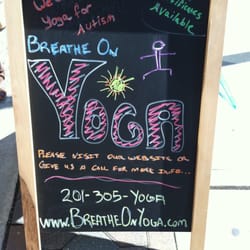 Yoga for
Autism
Available
Breathe On
Yoga
Please visit our website or
give us a call for more info...
201-305-YOGA
www.BreatheOnYoga.com